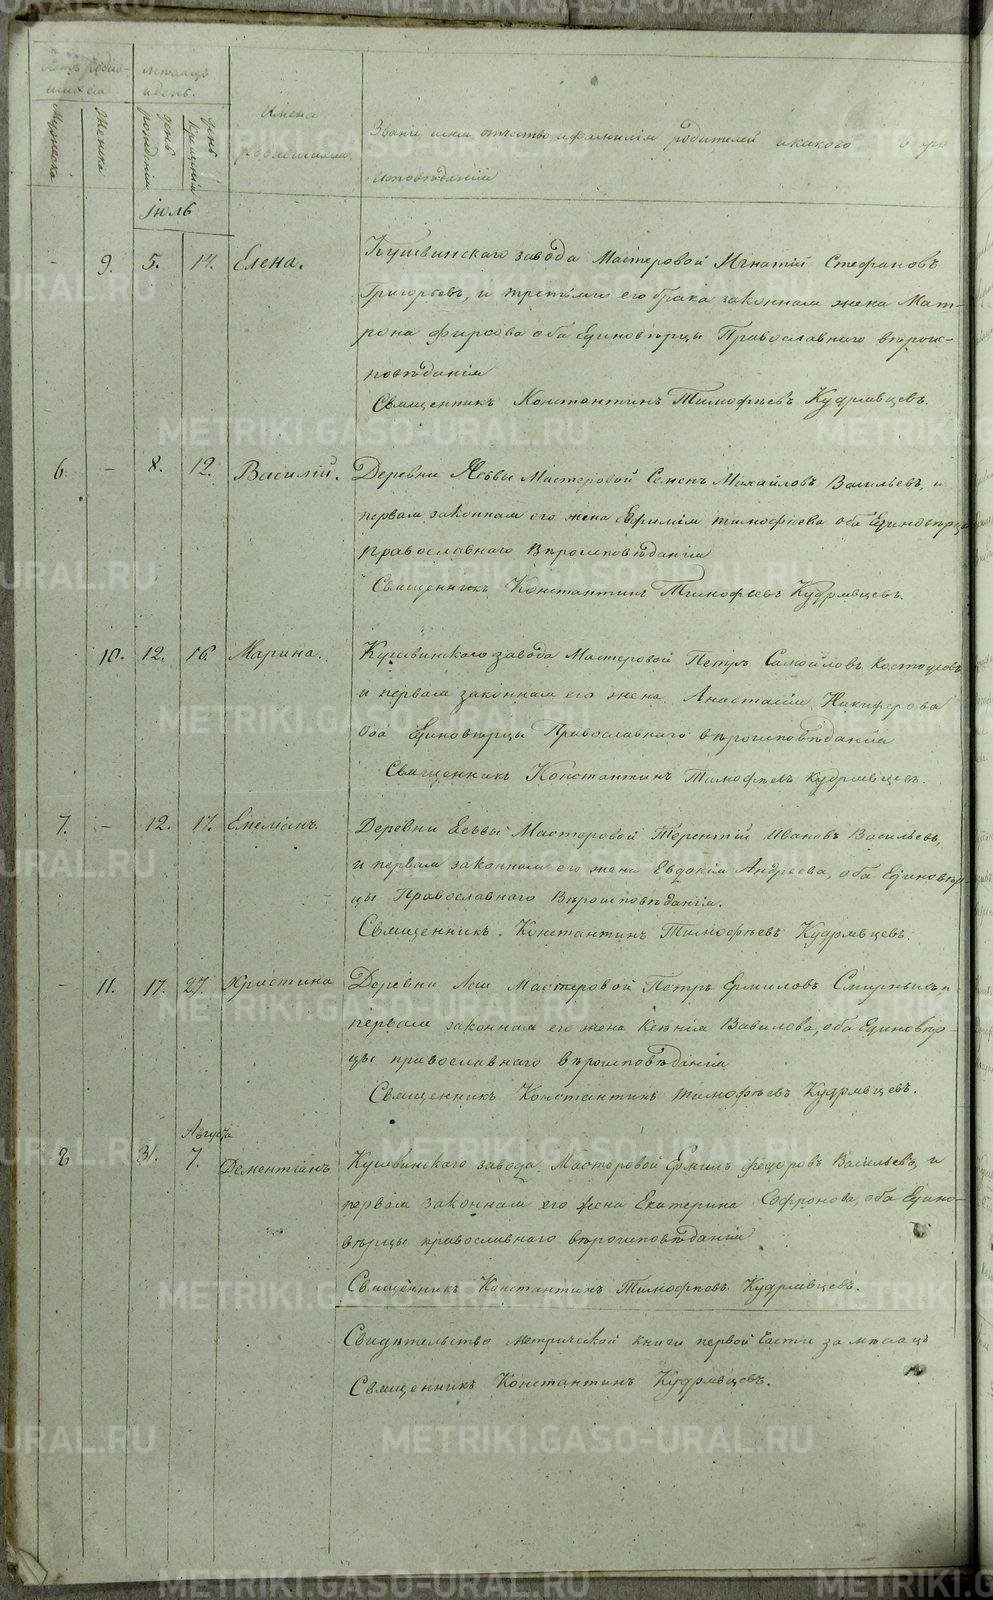 METRIKI.GASO-URAL.RU
Счетъ родив-
шихся
Мужеска
Женска
мѣсяцъ
и день.
день рожденія
день крещенія
Имена
родившихся
Званіе имя отчество и фамилія родителей и какого
исповѣданія
Іюль
9. 5. 14. Елена. Кушвинскаго завода Мастеровой Игнатій Стефановъ
Григорьевъ, и третьяго его брака законная жена Мат-
рона Фирсова оба Единовѣрцы Православнаго вѣроис-
повѣданія
Священникъ Константинъ Тимофѣевъ Кудрявцевъ.
6. – 8. 12. Василій. Деревни Мастеровой Семенъ Михайловъ Васильевъ, и
первая законная его жена Евфимія Тимофеева оба Единовѣрцы
православнаго Вѣроисповѣданія
Священникъ Константинъ Тимофеевъ Кудрявцевъ.
10. 12. 16. Марина. Кушвинскаго завода Мастеровой Петръ Самойловъ
и первая законная его жена Анастасія Никиферова
оба Единовѣрцы Православнаго вѣроисповѣданія
Священникъ Константинъ Тимофѣевъ Кудрявцевъ.
7. – 12. 17. Емеліанъ. Деревни Мастеровой Терентій Ивановъ Васильевъ,
и первая законная его жена Евдокія Андреева, оба Единовѣр-
цы Православнаго Вѣроисповѣданія.
Священникъ. Константинъ Тимофѣевъ Кудрявцевъ.
– 11. 17. 27. Христина Деревни Мастеровой Петръ Ермиловъ Смирныхъ, и
первая законная его жена Ксенія Вавилова, оба Единовѣр-
цы православнаго вѣроисповѣданія
Священникъ Константинъ Тимофѣевъ Кудрявцевъ.
Августа
8 31. 7. Дементіанъ Кушвинскаго завода Мастеровой Ермилъ Федоровъ Васильевъ, и
первая законная его жена Екатерина Софронова, оба Едино-
вѣрцы православнаго вѣроисповѣданія
Священникъ Константинъ Тимофѣевъ Кудрявцевъ.
Свидѣтельство метрической книги первой части за мѣсяцъ
Священникъ Константинъ Кудрявцевъ.